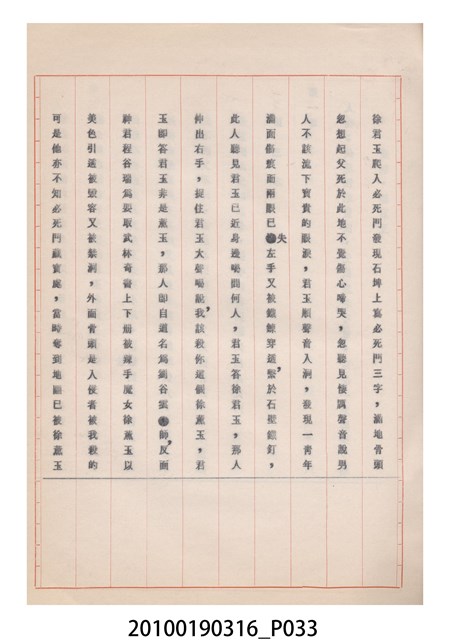 徐君玉爬入必死門發現石埤上寫必死門三字，滿地骨頭
忽想起父死於此地不覺傷心啼哭，忽聽見悽諷聲音說男
人不該流下寶貴的眼淚，君玉順聲音入洞，發現一青年
滿面傷痕面兩眼已失左手又被鐵鍊穿過，繫於石壁鐵釘，
此人聽見君玉已近身邊喝問何人，君玉答徐君玉，那人
伸出右手，捉住君玉大聲喝說，我該殺你這個徐薰玉，君
玉即答君玉非是薰玉，那人即自道名為鍋谷蛮師，反面
神君程谷瑞為要取武林奇書上下冊被辣手魔女徐薰玉以
美色引延被毀容又被禁洞，外面骨頭是人侵者被我殺的
可是他亦不知必死門藏寶處，當時奪到地圖已被徐薰玉
20100190316_P033